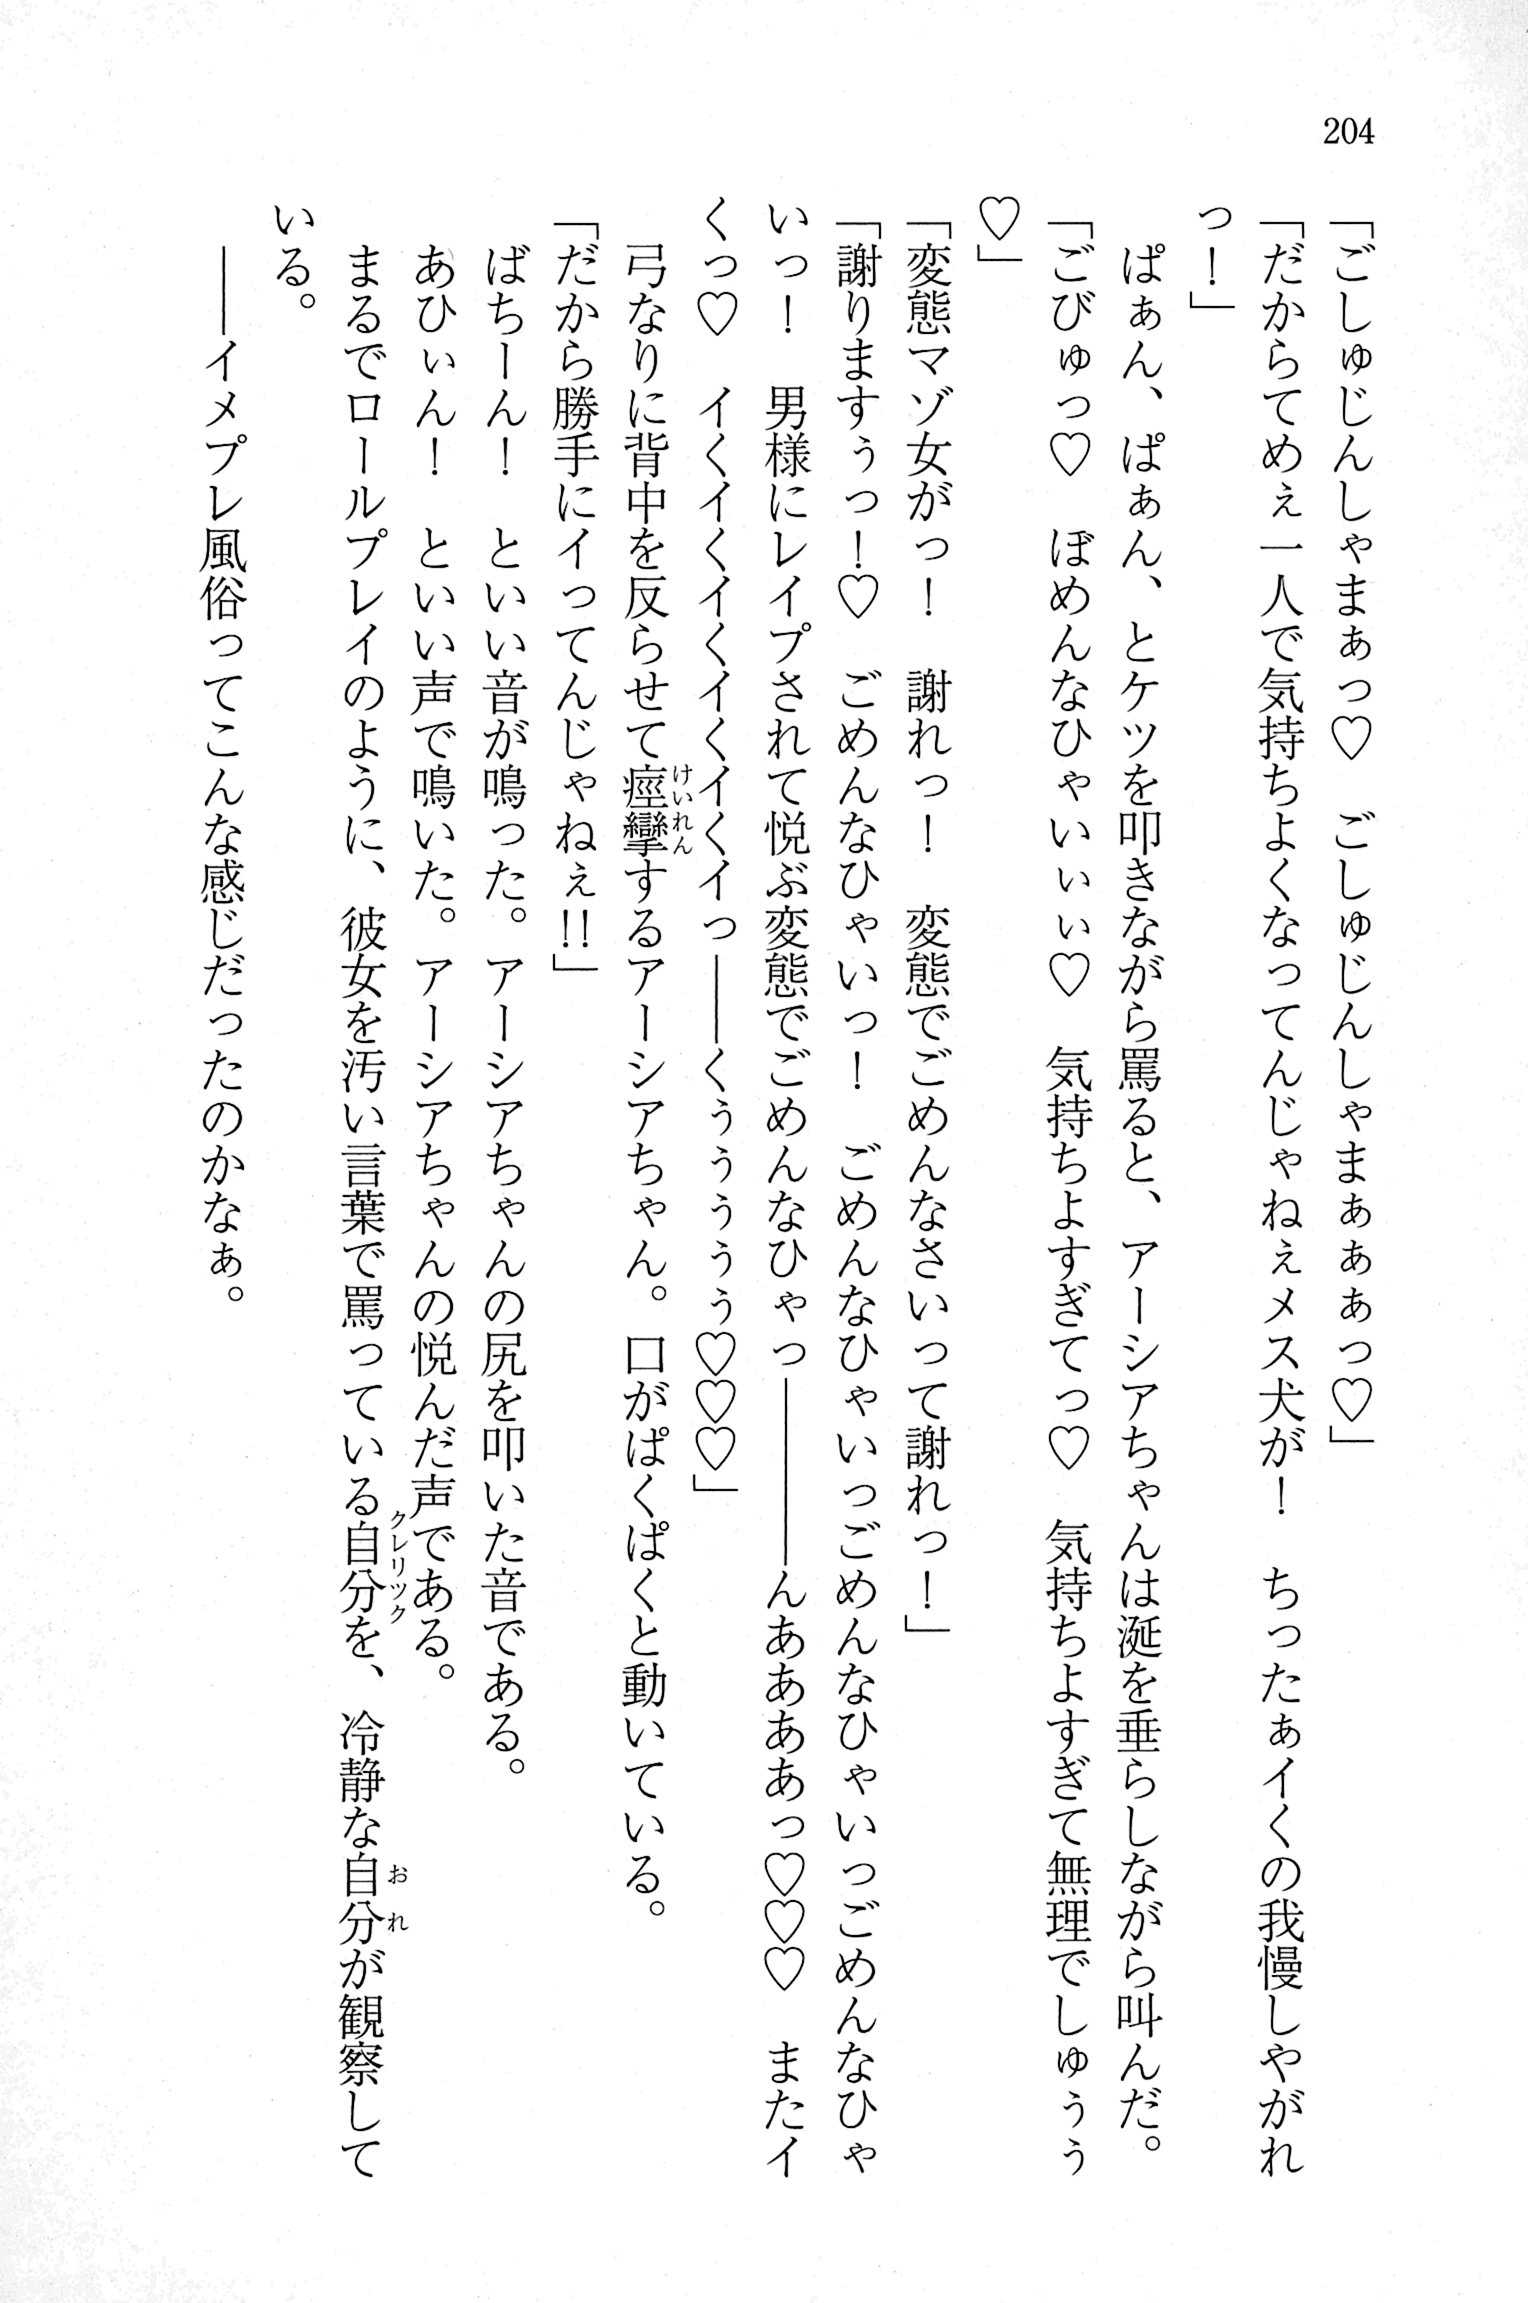 204
「ごしゅじんしゃまぁっ♡　ごしゅじんしゃまぁぁぁっ♡」
「だからてめぇ一人で気持ちよくなってんじゃねぇメス犬が！　ちったぁイくの我慢しやがれ
っ！」
　ぱぁん、ぱぁん、とケツを叩きながら罵ると、アーシアちゃんは涎を垂らしながら叫んだ。
「ごびゅっ♡　ぼめんなひゃいぃぃ♡　気持ちよすぎてっ♡　気持ちよすぎて無理でしゅぅぅ
♡」
「変態マゾ女がっ！　謝れっ！　変態でごめんなさいって謝れっ！」
「謝りますぅっ！♡　ごめんなひゃいっ！　ごめんなひゃいっごめんなひゃいっごめんなひゃ
いっ！　男様にレイプされて悦ぶ変態でごめんなひゃっ――――んああああっ♡♡♡　またイ
くっ♡　イくイくイくイくイくイっ――くぅぅぅぅぅ♡♡♡」
　弓なりに背中を反らせて痙攣するアーシアちゃん。口がぱくぱくと動いている。
けいれん
「だから勝手にイってんじゃねぇ!!」
　ばちーん！　といい音が鳴った。アーシアちゃんの尻を叩いた音である。
　あひぃん！　といい声で鳴いた。アーシアちゃんの悦んだ声である。
　まるでロールプレイのように、彼女を汚い言葉で罵っている自分を、冷静な自分が観察して
クレリック
おれ
いる。
　――イメプレ風俗ってこんな感じだったのかなぁ。